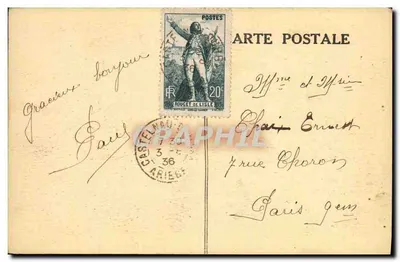 POSTES
ARTE POSTALE
RF
ROUGET DE LISLE
20c
Gracieux bonjour
Paul
CASTELNAU
3
36
ARIEGE
CPAPHIL
Mme et Mr
Ernest
7 rue Choron
Paris 9em